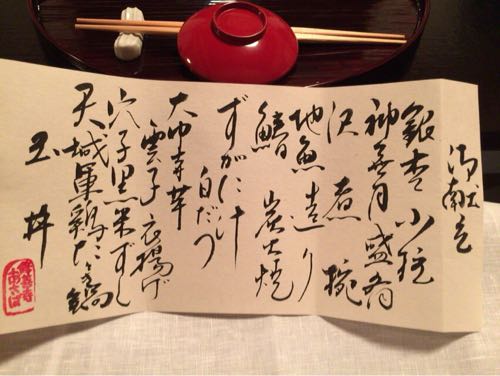 御献立
銀杏 小柱
神無月盛肴
沢煮椀
地魚造り
鰆 炭火焼
ずがに汁
白だつ
大中寺芋
雲子 衣揚げ
穴子黒米ずし
天城軍鶏たゝき鍋
玉丼
修善寺
あさば